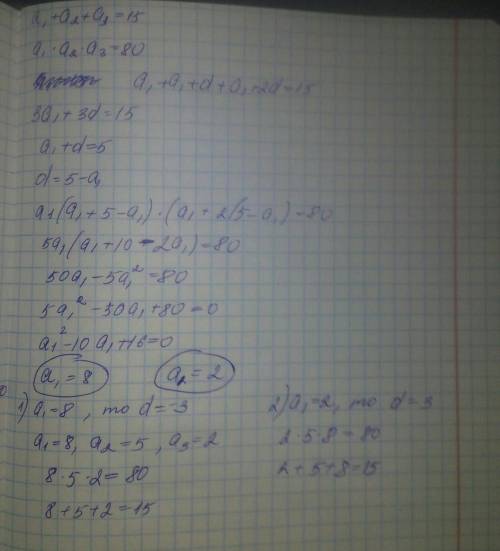 a₁+a₂+a₃=15
a₁·a₂·a₃=80
a₁+a₁+d+a₁+2d=15
3a₁+3d=15
a₁+d=5
d=5-a₁
a1(a₁+5-a₁)·(a₁+2(5-a₁)=80
5a₁(a₁+10-2a₁)=80
50a₁-5a₁²=80
5a₁²-50a₁+80=0
a₁²-10a₁+16=0
a₁=8 a₂=2
1) a₁=8, то d=-3
a₁=8, a₂=5, a₃=2
8·5·2=80
8+5+2=15
2) a₁=2, то d=3
2·5·8=80
2+5+8=15